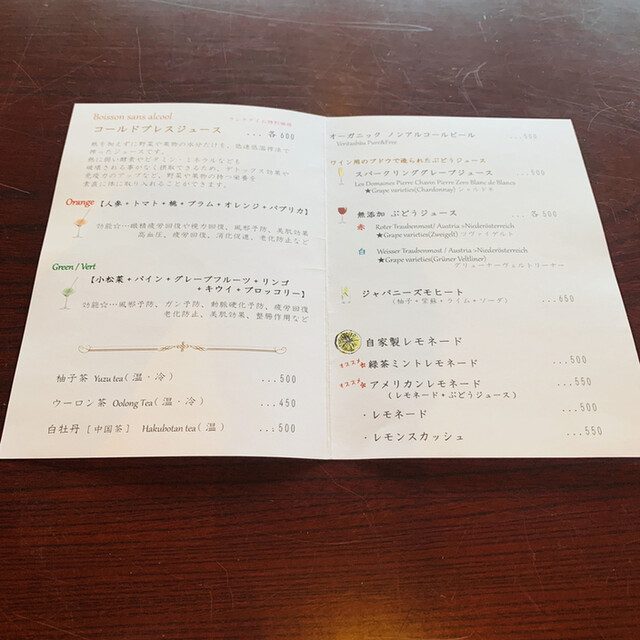 Boisson sans alcool
コールドプレスジュース ... 各600
熱を加えずに野菜や果物の水分だけを、低速低温搾法で
搾ったジュースです。
熱に弱い酵素やビタミン・ミネラルなども
破壊される事がなく摂取できるため、デトックス効果や
免疫力のアップなど、野菜や果物の持つ栄養を
素直に体に取り入れることができます。
Orange 【人参・トマト・桃・プラム・オレンジ・パプリカ】
効能☆…眼精疲労回復や視力回復、風邪予防、美肌効果
高血圧、疲労回復、消化促進、老化防止など
Green / Vert
【小松菜+パイン+グレープフルーツ+リンゴ
+キウイ+ブロッコリー】
効能☆…風邪予防、ガン予防、動脈硬化予防、疲労回復
老化防止、美肌効果、整腸作用など
柚子茶 Yuzu tea ( 温・冷 ) ...500
ウーロン茶 Oolong Tea ( 温・冷 ) ...450
白牡丹 [ 中国茶 ] Hakubotan tea ( 温 ) ...500
オーガニック ノンアルコールビール ...500
Veritasbräu Pure&Free
ワイン用のブドウで造られたぶどうジュース
スパークリンググレープジュース ...500
Les Domaines Pierre Chavin Pierre Zero Blanc de Blancs
★Grape varieties(Chardonnay) シャルドネ
無添加 ぶどうジュース ... 各500
赤 Roter Traubenmost/ Austria >Niederösterreich
★Grape varieties(Zweigelt) ツヴァイゲルト
白 Weisser Traubenmost / Austria >Niederösterreich
★Grape varieties(Grüner Veltliner)
グリューナーヴェルトリーナー
ジャパニーズモヒート ...650
( 柚子・紫蘇・ライム・ソーダ )
自家製 レモネード
オススメ☆ 緑茶ミントレモネード ...500
オススメ☆ アメリカンレモネード ...550
( レモネード+ぶどうジュース )
・レモネード ...500
・レモンスカッシュ ... 550